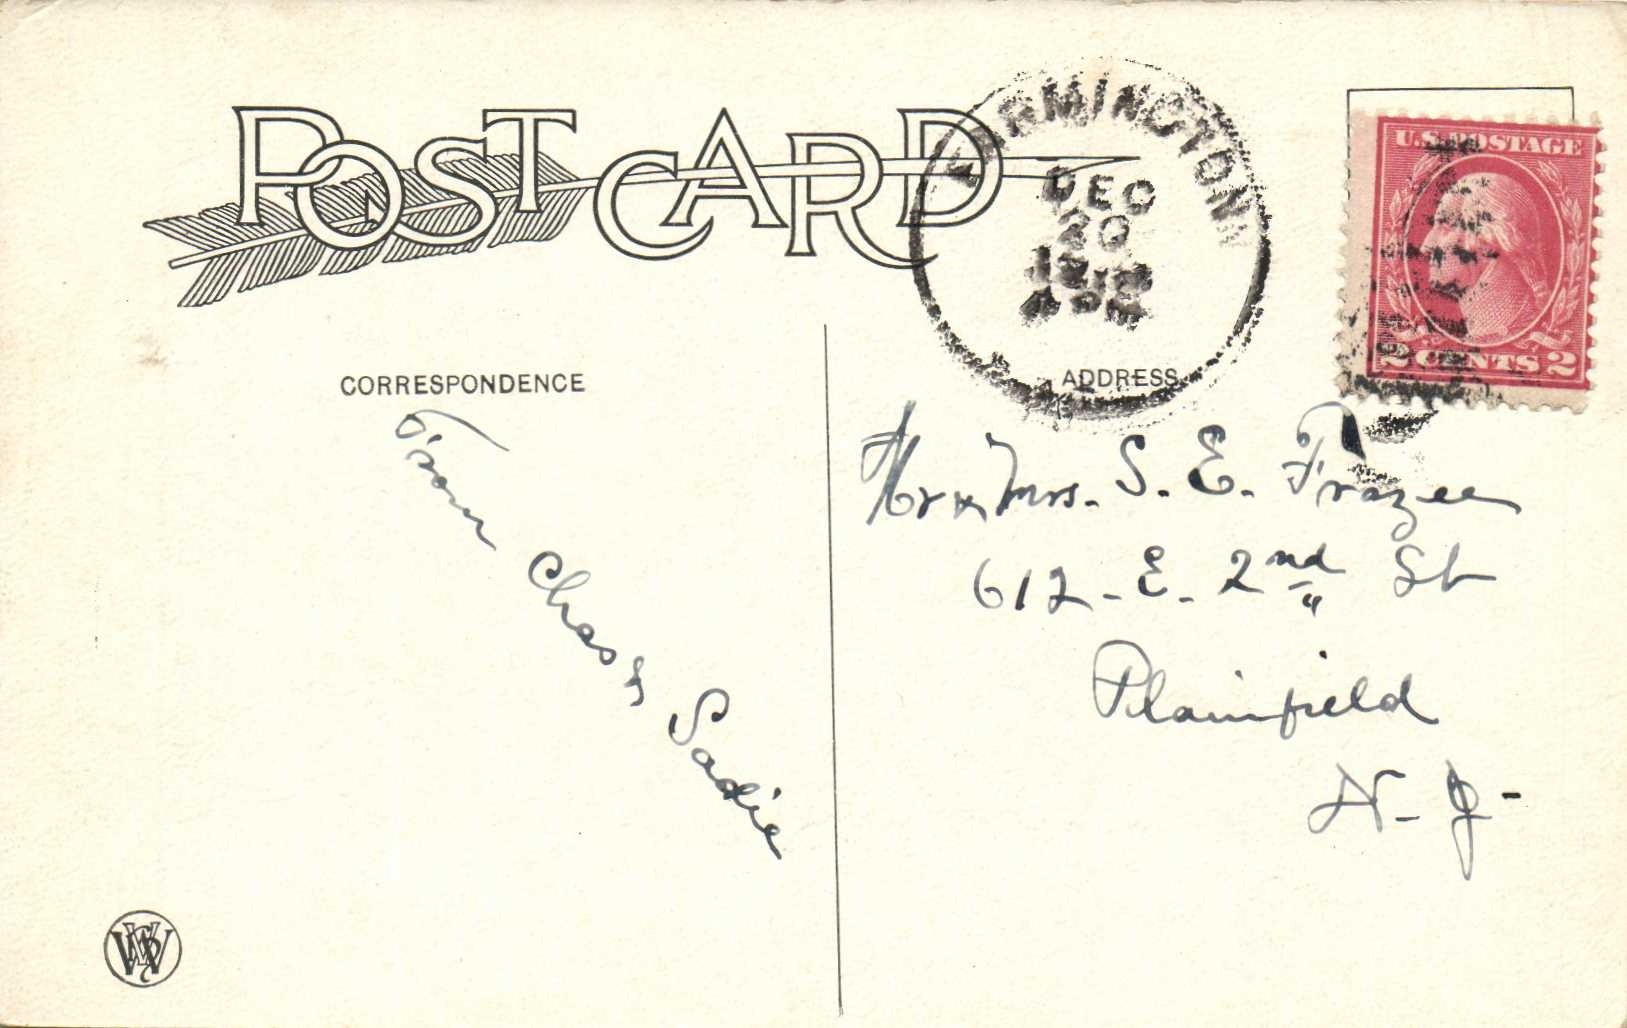 POST CARD
FARMINGTON
DEC
20
U.S. POSTAGE
2 CENTS 2
CORRESPONDENCE
ADDRESS
From Chas & Sadie
Mr & Mrs. S. E. Frazee
612 - E. 2nd St
Plainfield
N. J.